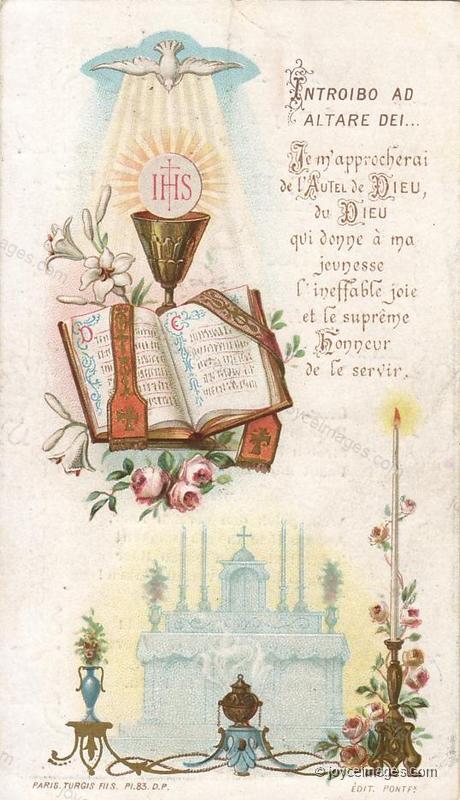 IHS
INTROIBO AD
ALTARE DEI...
Je m'approcherai
de l'AUTEL de DIEU,
du DIEU
qui donne à ma
jeunesse
l'ineffable joie
et le suprême
Honneur
de le servir.
D
C
PARIS. TURGIS FILS. Pl. 83. D.P.
ÉDIT. PONTFS
© joyceimages.com